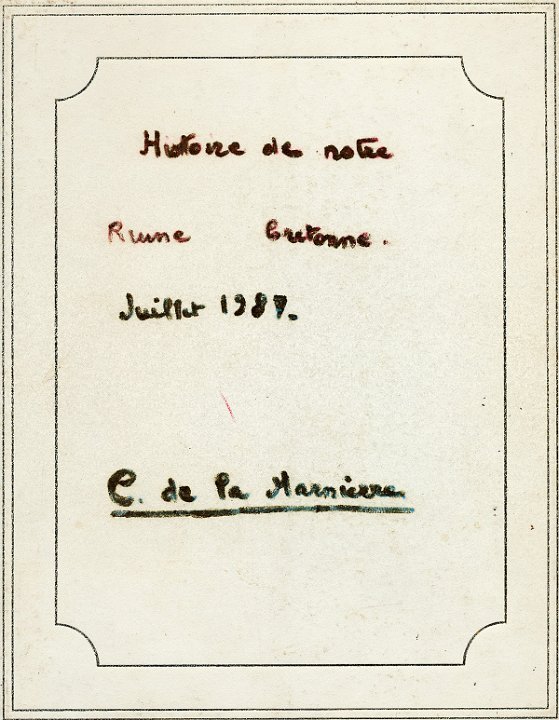 Histoire de notre
Ruine bretonne.
Juillet 1987.
C. de la Marnierre